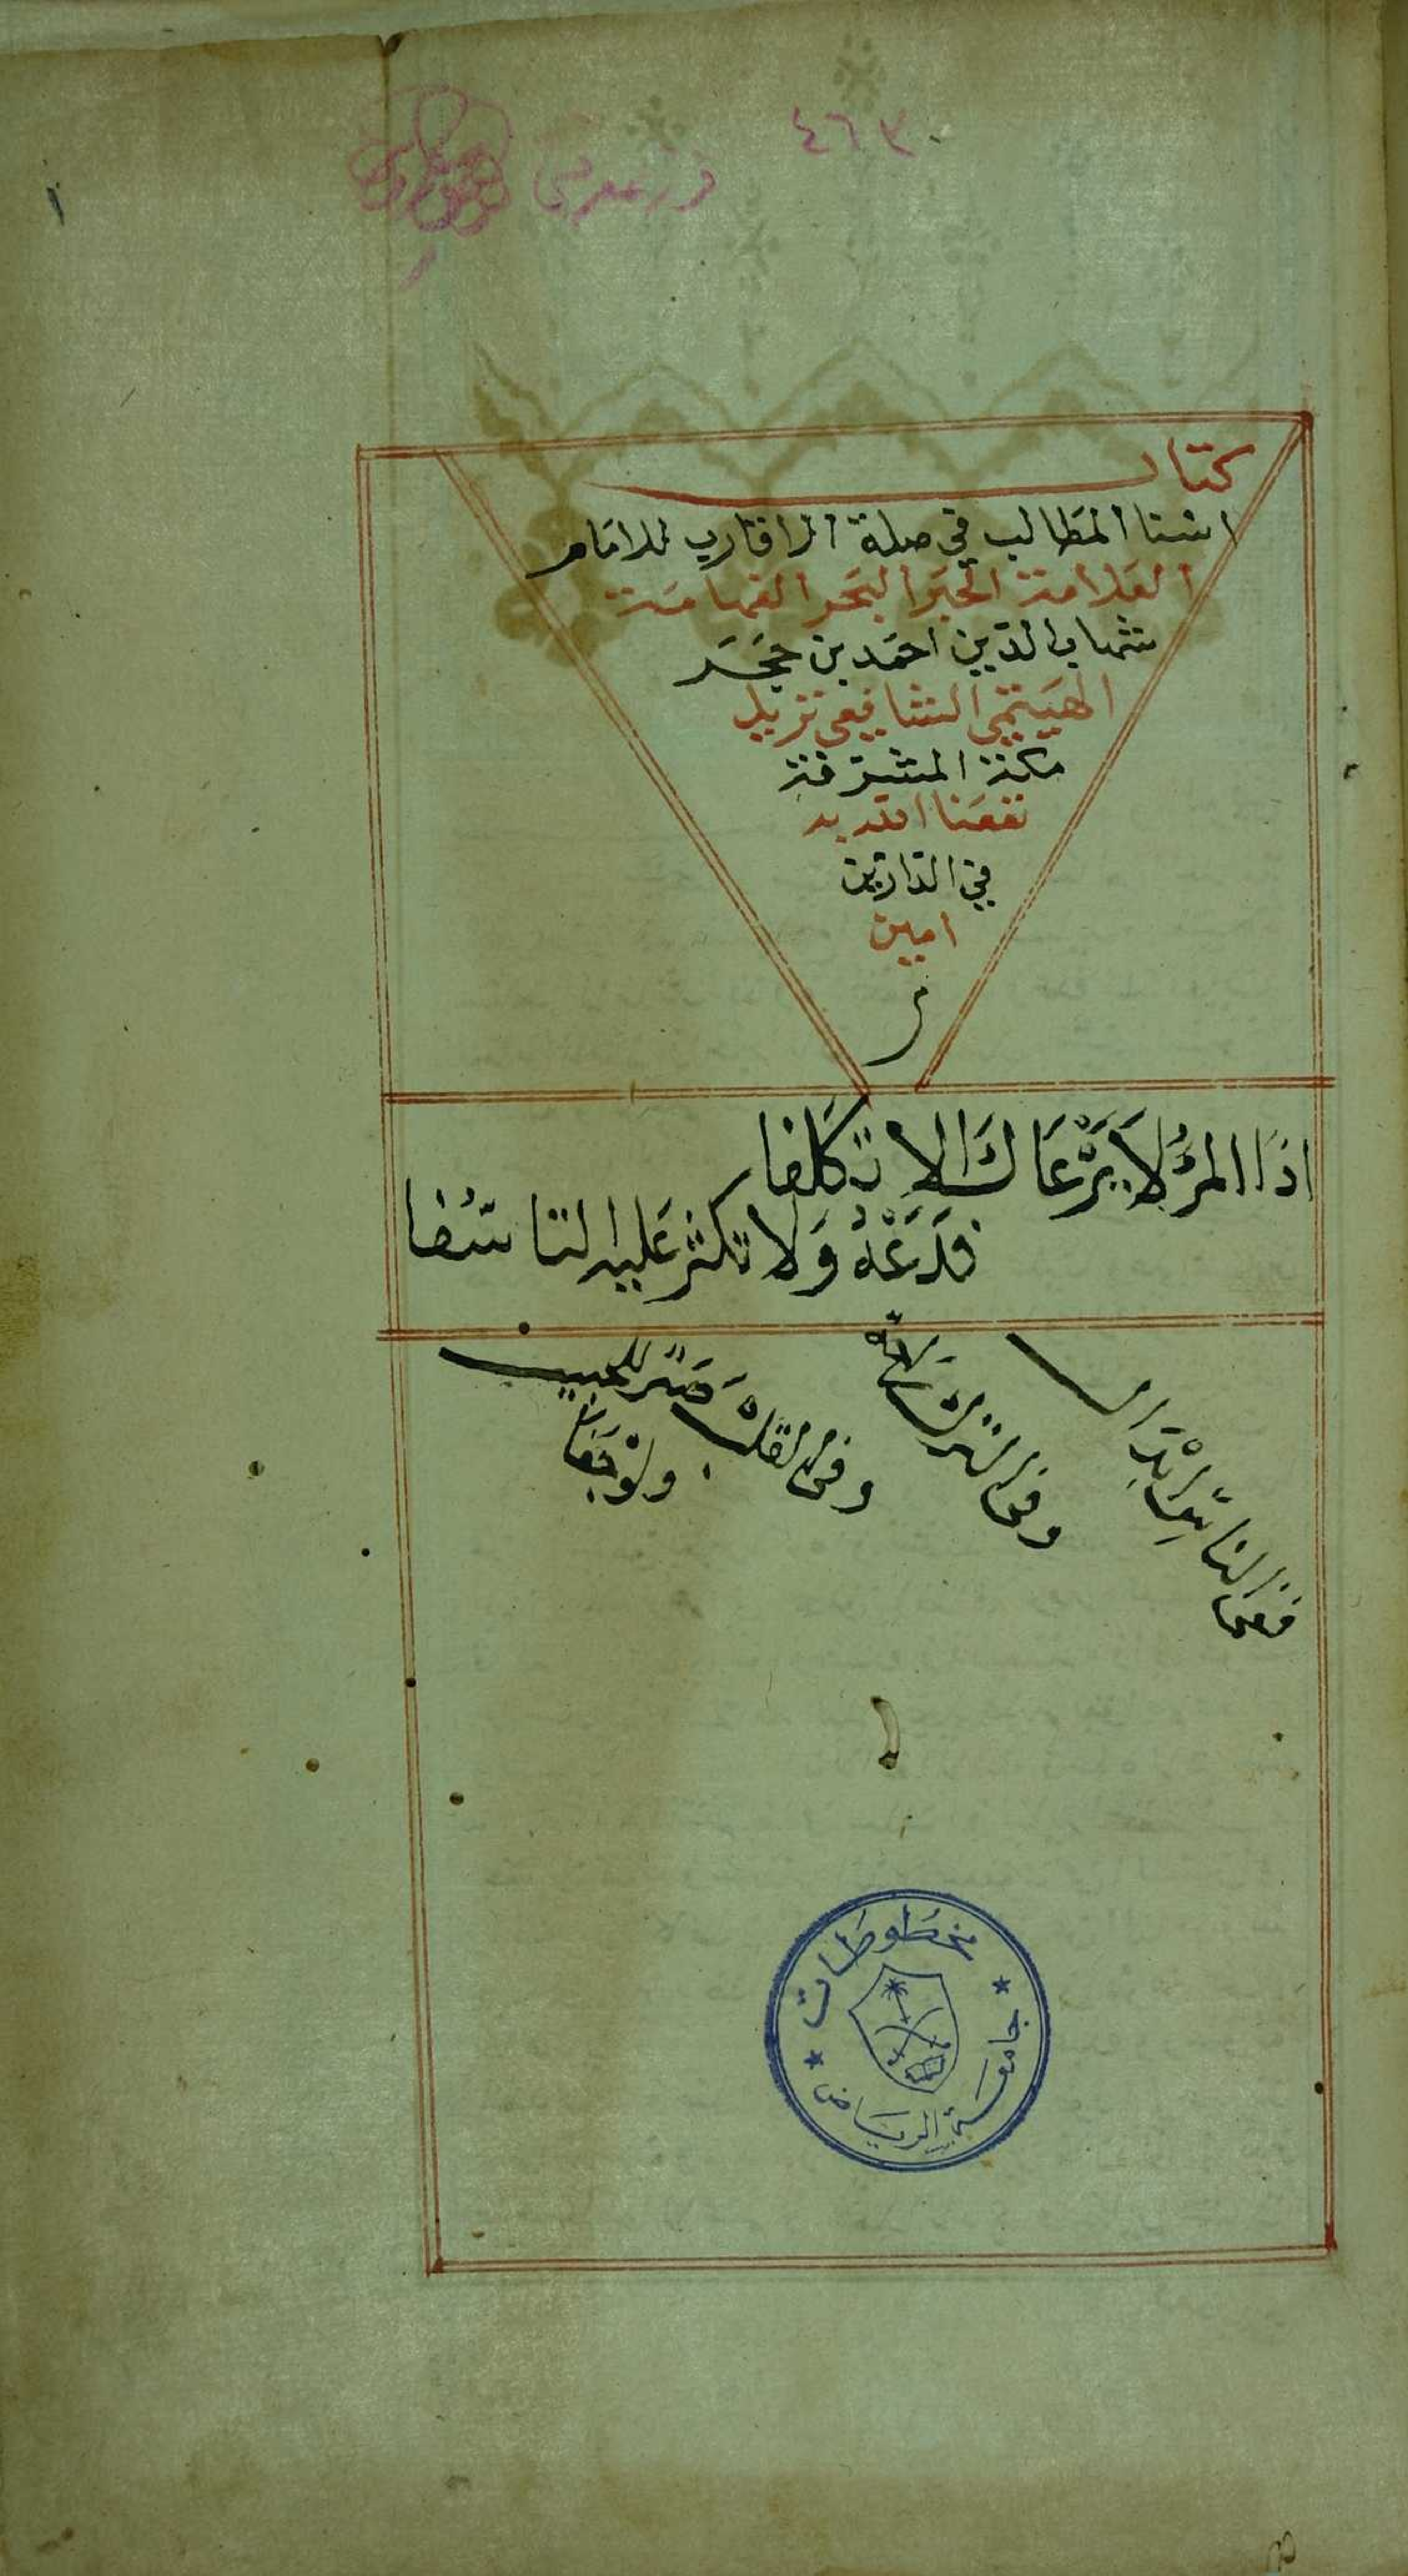 ٤٦٣٠
١
كتاب
اسنا المطالب في صلة الاقارب للامام
العلامة الحبر البحر الفهامة
شهاب الدين احمد بن حجر
الهيتمي الشافعي نزيل
مكة المشرفة
نفعنا الله به
في الدارين
امين
اذَا المرؤُ لَا يَرْعَاكَ الا تكَلفا
فَدَعْهُ وَلا تكثر عَليه التاسُفا
ففى الناس ابْدَال
وفى الترك رَاحَة
وفى القلب صَبْر للحبيب
ولو جَفا
مخطوطات
جامعة الرياض